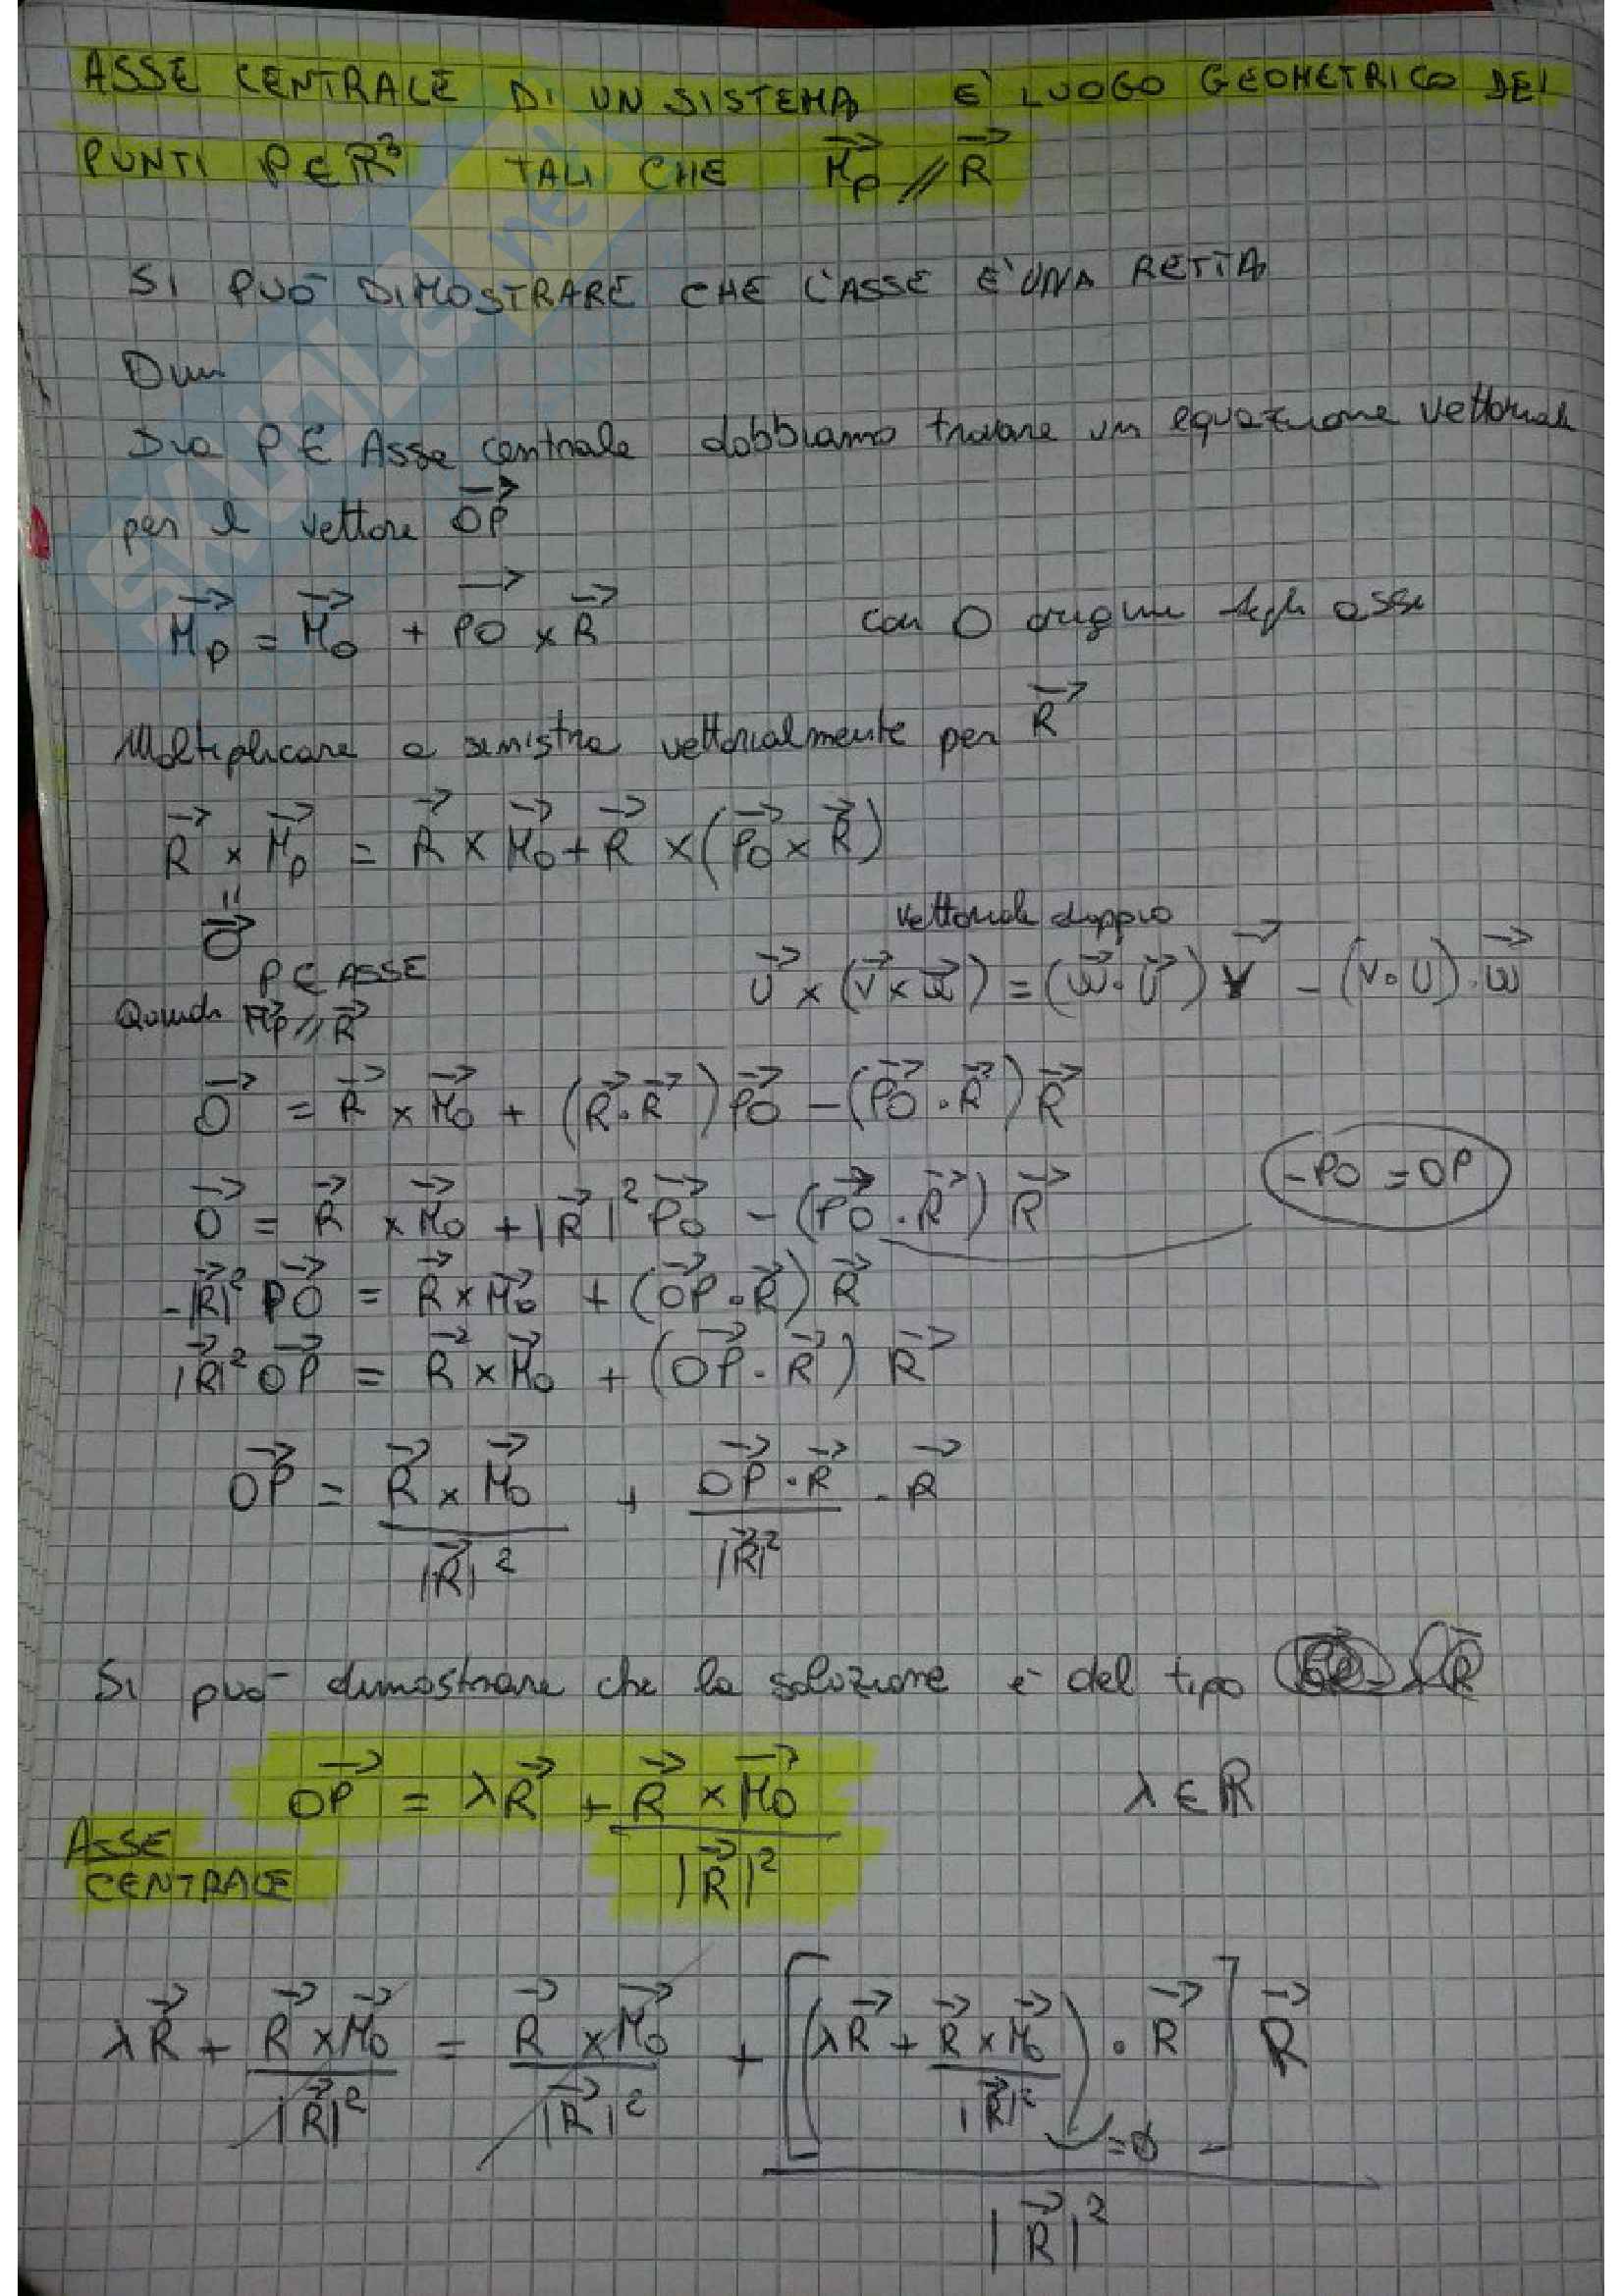 ASSE CENTRALE DI UN SISTEMA E' LUOGO GEOMETRICO DEI
PUNTI P∈ℝ³ TALI CHE M⃗_P // R⃗
SI PUÒ DIMOSTRARE CHE L'ASSE E' UNA RETTA
Dim
Sia P ∈ Asse centrale dobbiamo trovare un equazione vettoriale
per il vettore OP⃗
M⃗_P = M⃗_O + PO⃗ × R⃗ con O origine degli assi
Moltiplicare a sinistra vettorialmente per R⃗
R⃗ × M⃗_P = R⃗ × M⃗_O + R⃗ × (PO⃗ × R⃗)
"
0⃗
vettoriale doppio
P ∈ ASSE
U⃗ × (V⃗ × W⃗) = (W⃗ · U⃗) V⃗ - (V · U) · W⃗
Quindi M⃗_P // R⃗
0⃗ = R⃗ × M⃗_O + (R⃗ · R⃗) PO⃗ - (PO⃗ · R⃗) R⃗
-PO = OP
0⃗ = R⃗ × M⃗_O + |R⃗|² PO⃗ - (PO⃗ · R⃗) R⃗
-|R⃗|² PO⃗ = R⃗ × M⃗_O + (OP⃗ · R⃗) R⃗
|R⃗|² OP⃗ = R⃗ × M⃗_O + (OP⃗ · R⃗) R⃗
OP⃗ = R⃗ × M⃗_O / |R⃗|² + OP⃗ · R⃗ / |R⃗|² · R⃗
Si può dimostrare che la soluzione è del tipo
OP⃗ = λR⃗ + R⃗ × M⃗_O / |R⃗|² λ ∈ ℝ
ASSE
CENTRALE
λR⃗ + R⃗ × M⃗_O / |R⃗|² = R⃗ × M⃗_O / |R⃗|² + [(λR⃗ + R⃗ × M⃗_O / |R⃗|²) · R⃗] R⃗ / |R⃗|²
= 0
SKUOLA.net